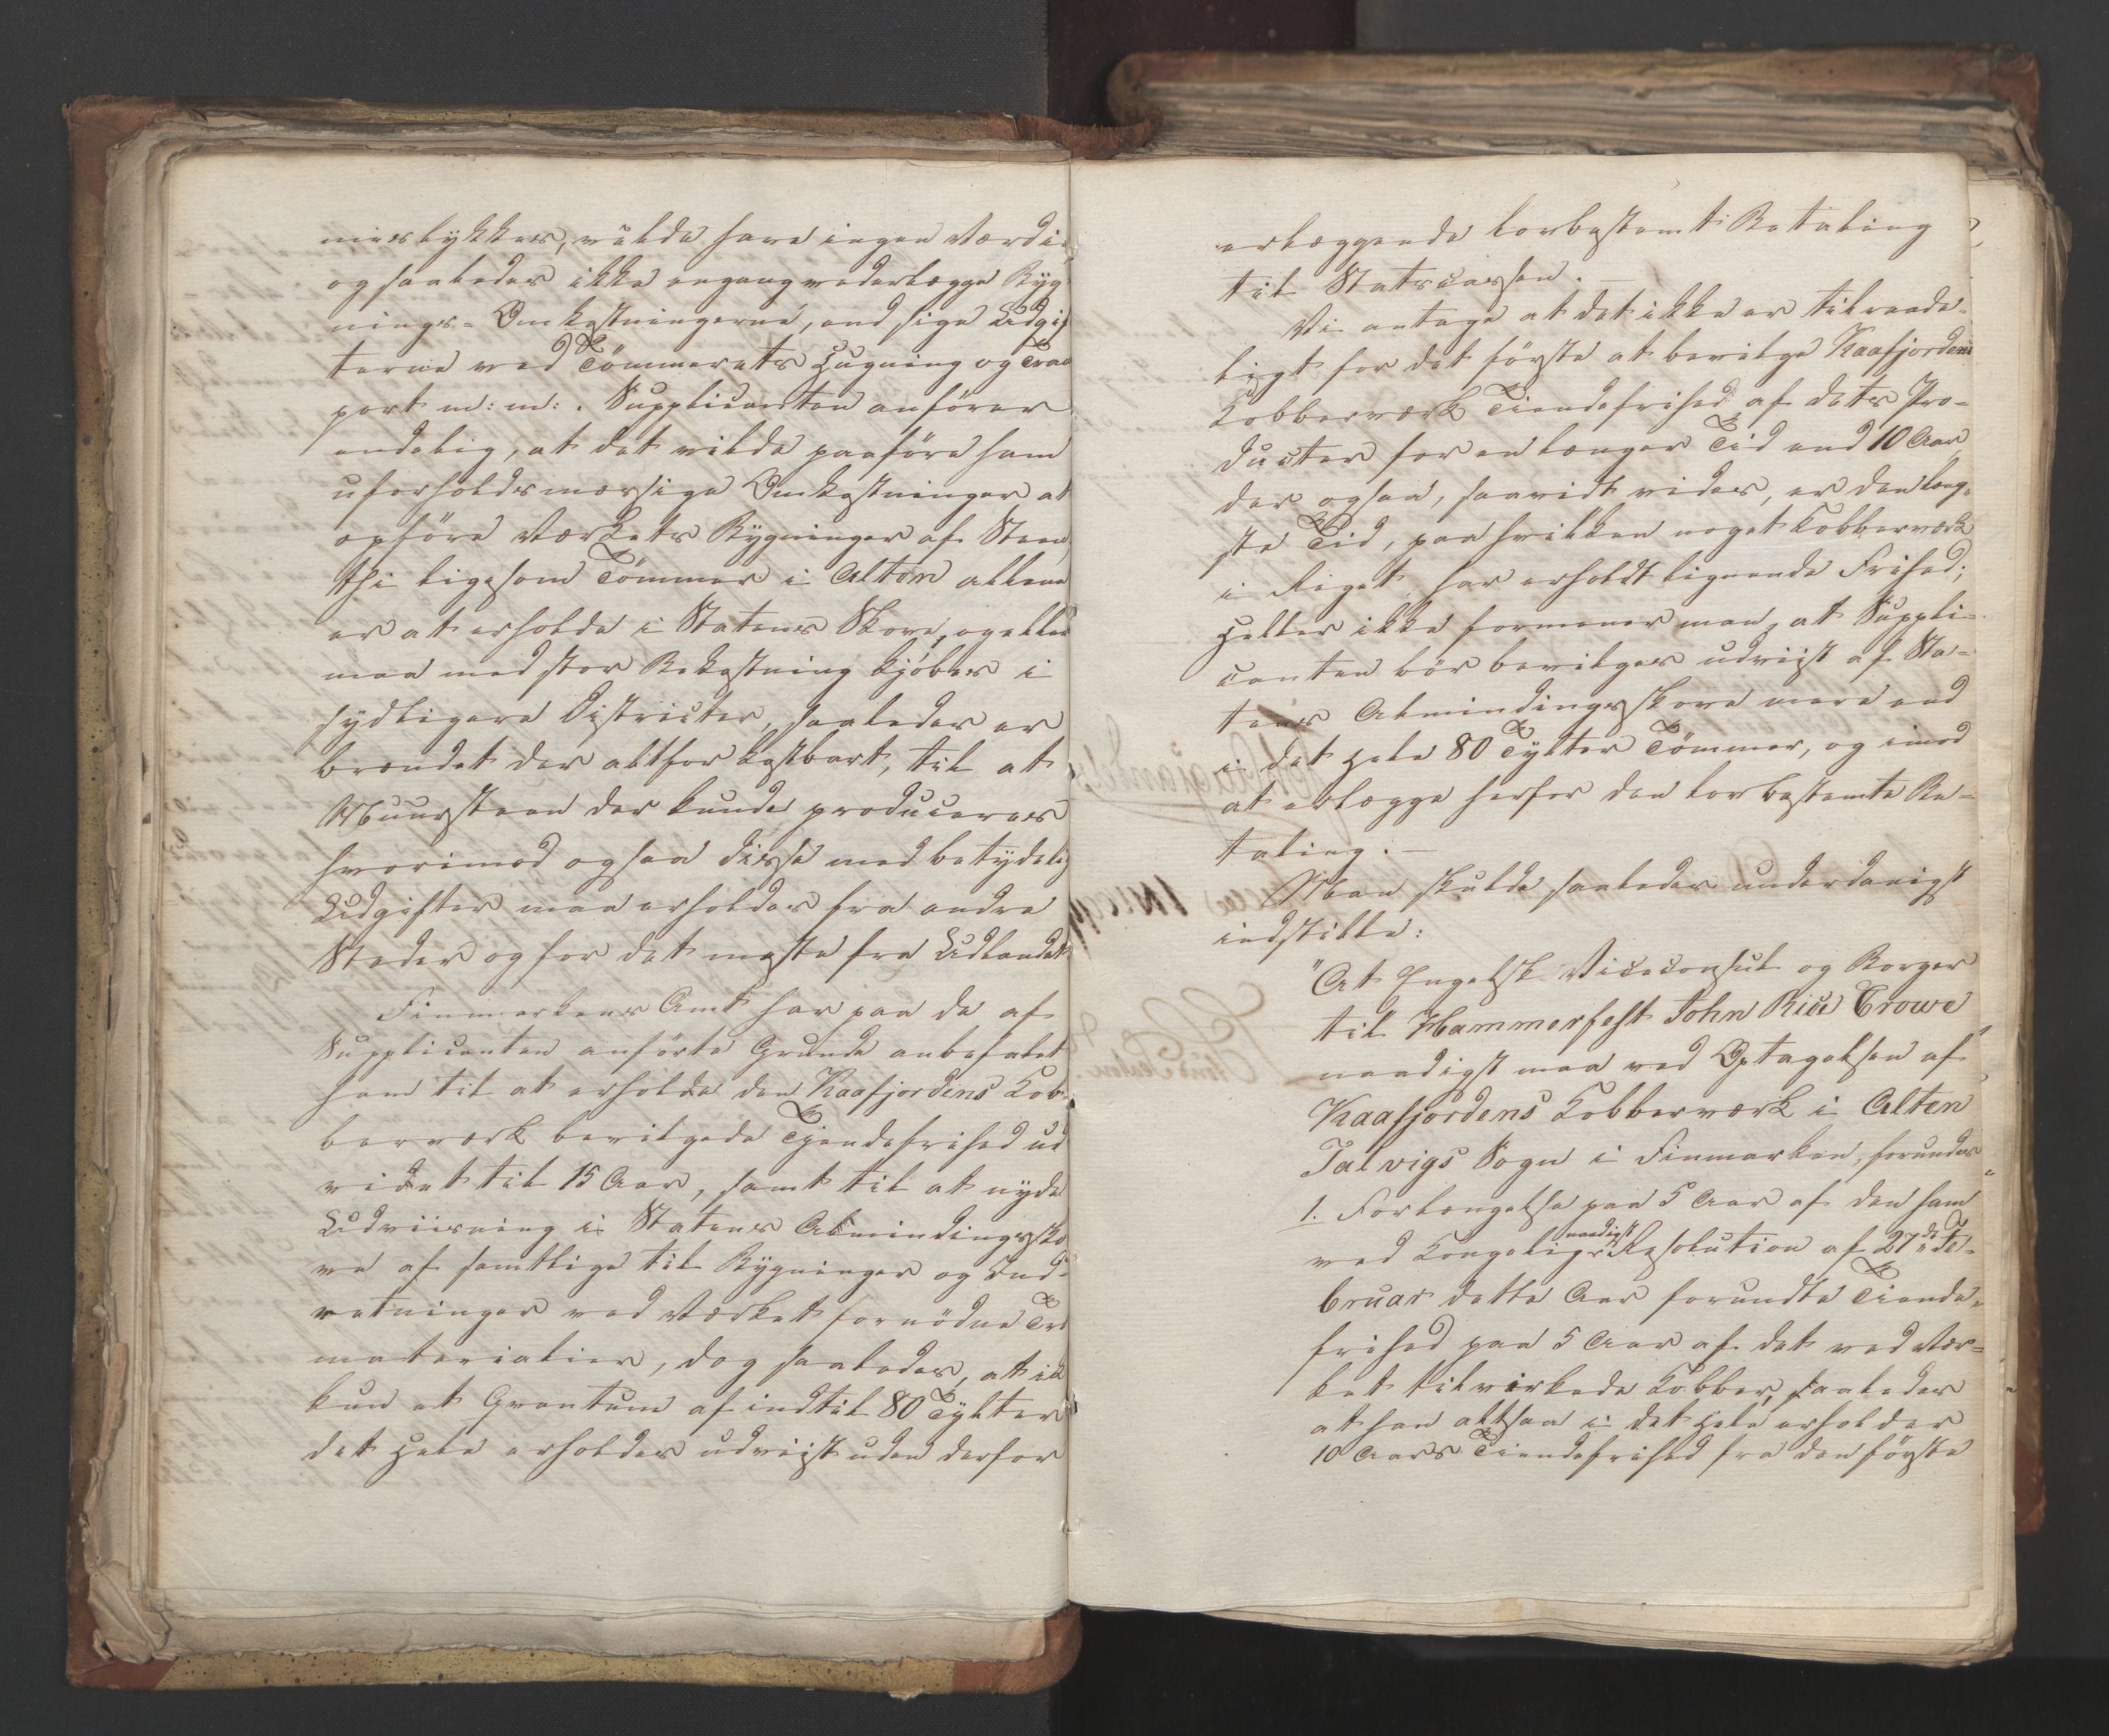 misslykkes, vilde have ingen Værdie
og saaledes ikke engang vederlægge Byg
nings-Omkostningerne, end sige Udgif
terne ved Tømmerets Hugning og Trans
port m: m: . Supplicanten anfører
endelig, at det vilde paaføre ham
uforholdsmæssige Omkostninger at
opføre Værkets Bygninger af Steen,
thi ligesom Tømmer i Alten allene
er at erholde i Statens Skove, og ellers
maa med stor Bekostning kjøbes i
sydligere Districter, saaledes er
brændet der altfor kostbart, til at
Muursteen der kunde produceres
hvorimod ogsaa disse med betydelig
Udgifter maa erholdes fra andre
Steder og for det meste fra Udlandet
Finmarkens Amt har paa de af
Supplicanten anførte Grunde anbefalet
ham til at erholde den Kaafjordens Kob-
berværk bevilgede Tjendefrihed ud
videt til 15 Aar, samt til at nyde
Udviisning i Statens Almindingssko
ve af samtlige til Bygninger og Ind-
retninger ved Værket fornødne Træ
materialier, dog saaledes, at
kun et Qvantum af indtil 80 Tylter
det hele erholdes udviist uden derfor
erlæggende lovbestemt Betaling
til Statscassen. —
Vi antage at det ikke er tilraade-
ligt for det første at bevilge Kaafjordens
Kobberværk Tiendefrihed af dets Pro-
ducter for en længer Tid end 10 Aar,
der ogsaa, saavidt vides, er den læng-
ste Tid, paa hvilken noget Kobberværk
i Riget har erholdt lignende Frihed;
heller ikke formener man, at Suppli-
canten bør bevilges udviist af Sta-
tens Almindingsskove mere end
i det hele 80 Tylter Tømmer, og imod
at erlægge herfor den lovbestemte Be-
taling. —
Man skulde saaledes underdanigst
indstille:
"At Engelsk Viceconsul og Borger
til Hammerfest John Rice Crowe
naadigst maa ved Optagelsen af
Kaafjordens Kobberværk i Alten
Talvigs Sogn i Finmarken, forundes
1. Forlængelse paa 5 Aar af den ham
naadigst
ved Kongelig Resolution af 27de Fe-
bruar dette Aar forundte Tiende-
frihed paa 5 Aar af det ved Vær-
ket tilvirkede Kobber, saaledes
at han altsaa i det hele erholder
10 Aars Tiendefrihed fra den første